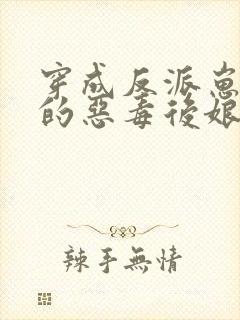 穿成反派崽
的惡毒後娘
辣手無情